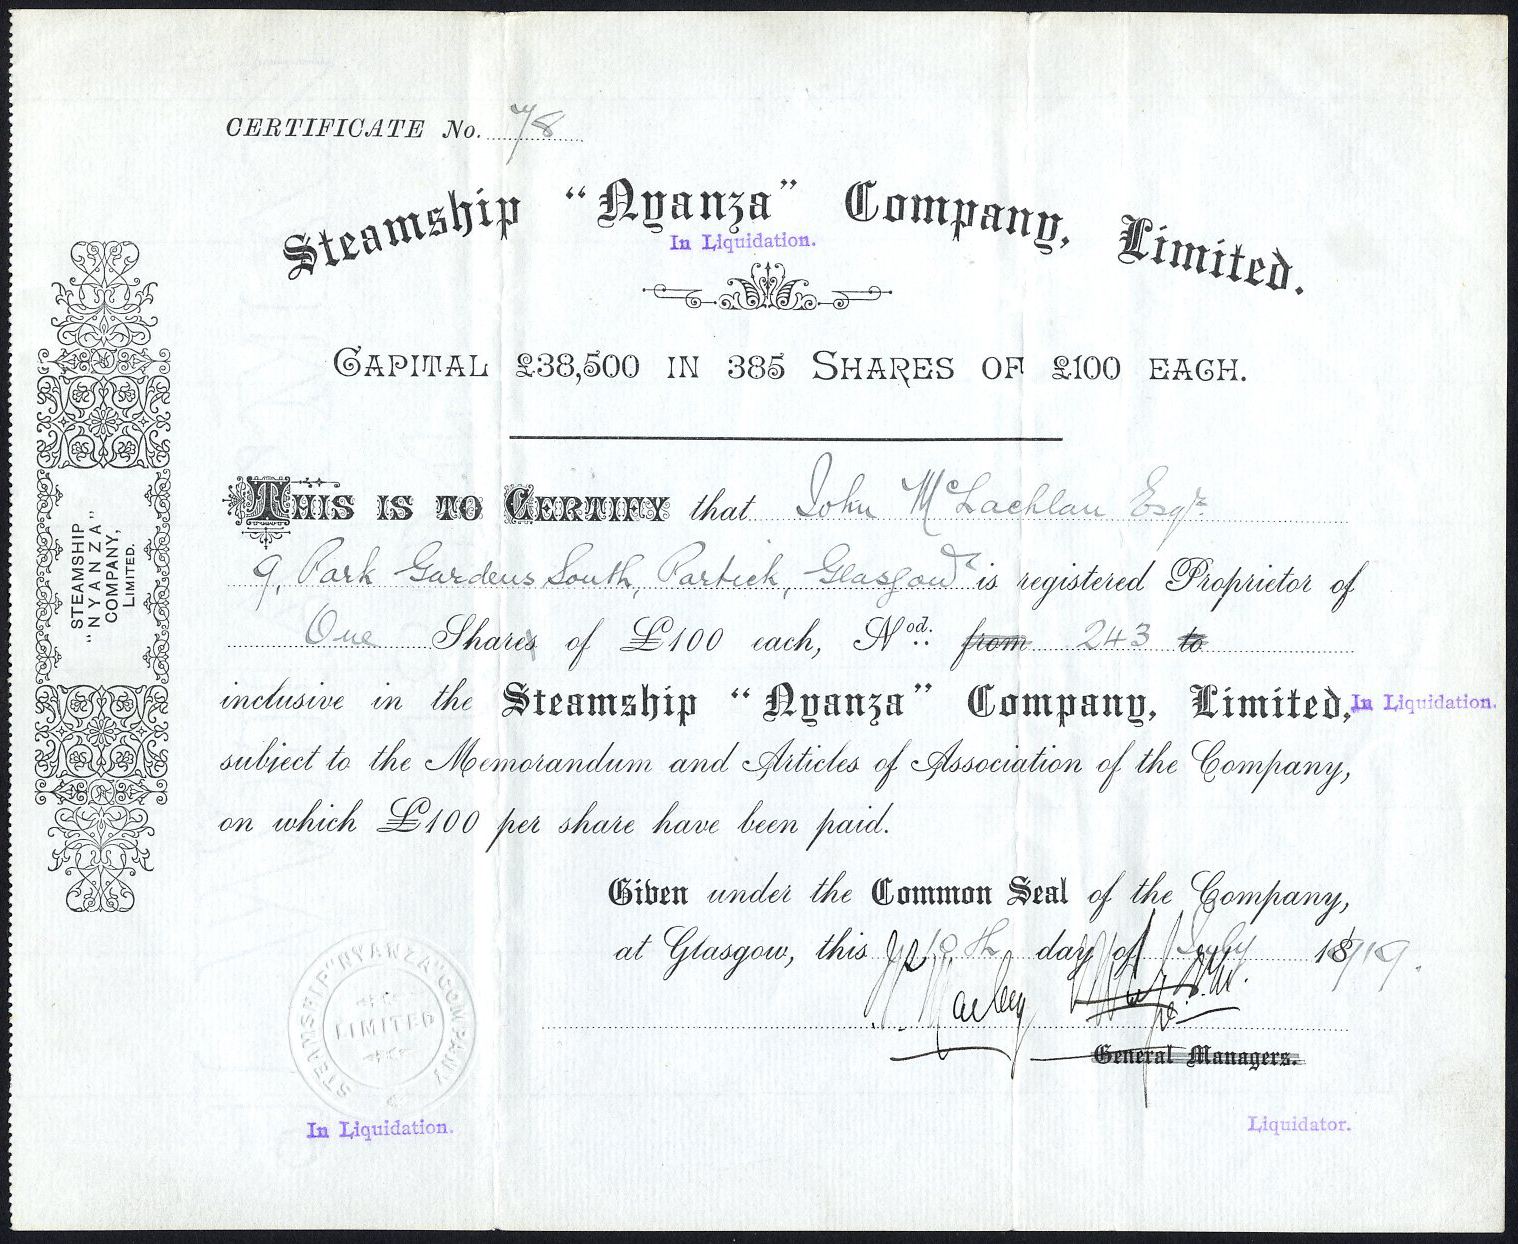 CERTIFICATE No. 78
Steamship “Nyanza” Company, Limited.
In Liquidation.
CAPITAL £38,500 IN 385 SHARES OF £100 EACH.
THIS IS TO CERTIFY that John McLachlan Esqr.
9, Park Gardens South, Partick, Glasgow is registered Proprietor of
One Shares of £100 each, Nod. from 243 to
inclusive in the Steamship “Nyanza” Company, Limited, In Liquidation.
subject to the Memorandum and Articles of Association of the Company,
on which £100 per share have been paid.
Given under the Common Seal of the Company,
at Glasgow, this day of July 1919.
General Managers.
In Liquidation.
Liquidator.
STEAMSHIP
“NYANZA”
COMPANY,
LIMITED.
STEAMSHIP "NYANZA" COMPANY
LIMITED